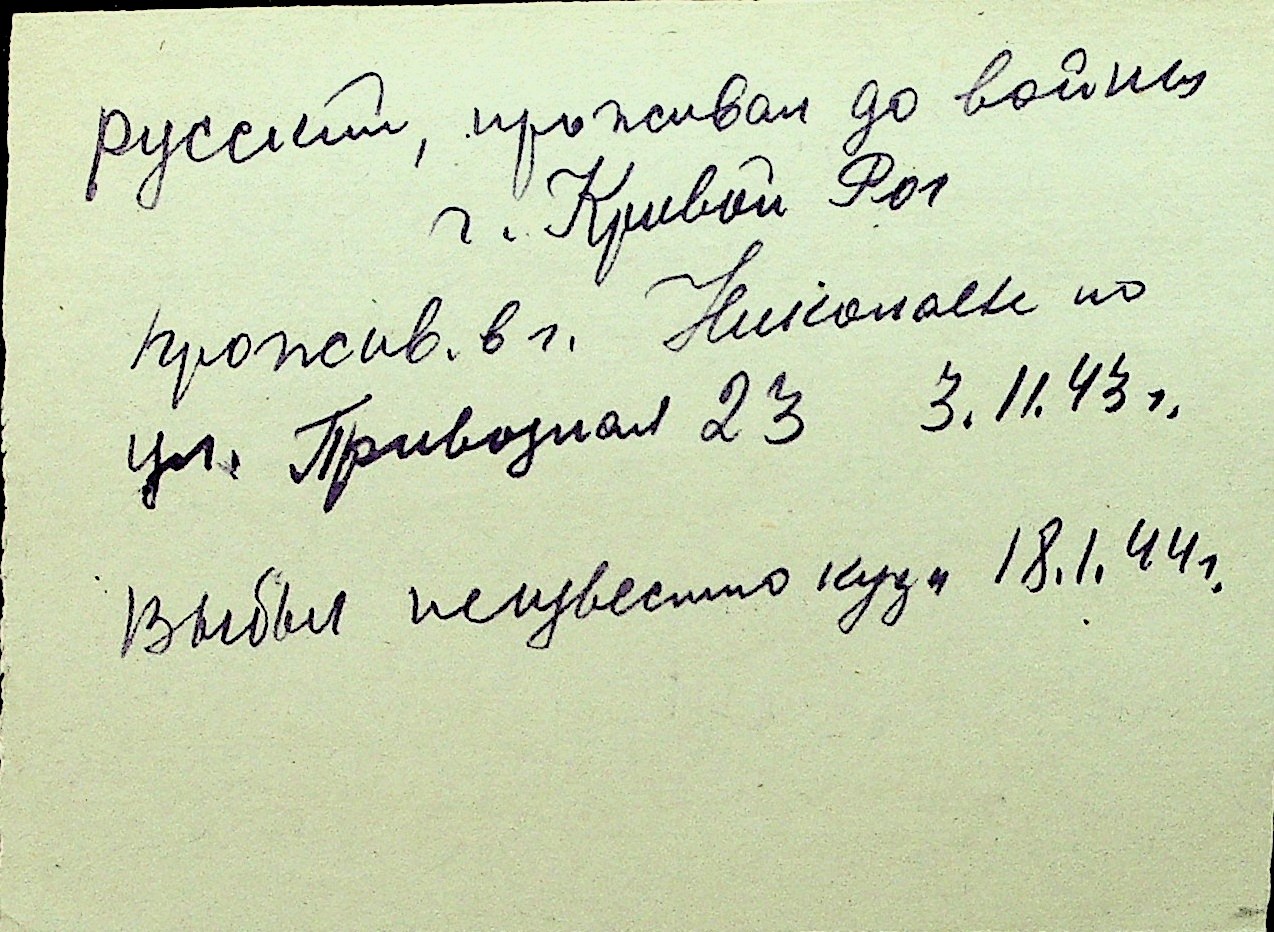 русский, проживал до войны
г. Кривой Рог
прожив. в г. Никополе по
ул. Привозная 23 3.11.43 г.
Выбыл неизвестно куда 18.1.44 г.